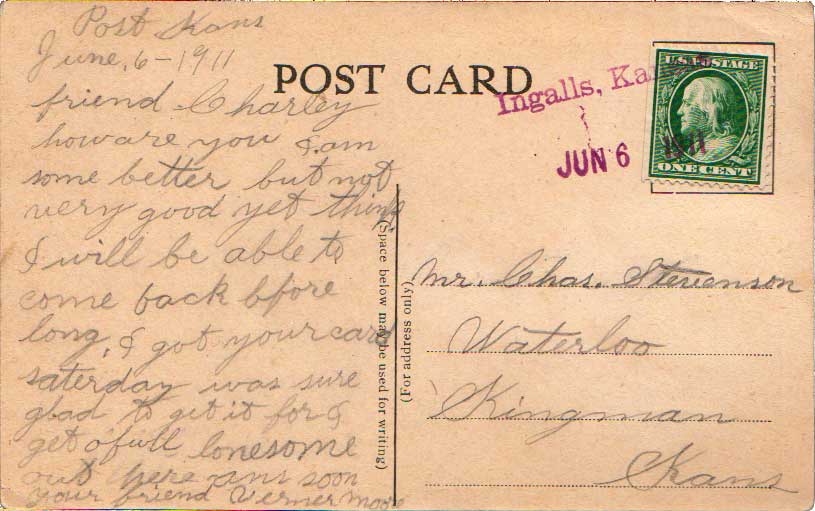 Post Kans
June. 6-1911
friend Charley
how are you I am
some better but not
very good yet think
I will be able to
come back bfore
long, I got your card
saterday was sure
glad to get it for I
get ofull lonesome
out here ans soon
your friend Verner Moore
POST CARD
Ingalls, Kans
JUN 6 1911
U.S. POSTAGE
ONE CENT
(Space below may be used for writing)
(For address only)
Mr. Chas. Stevenson
Waterloo
Kingman
Kans